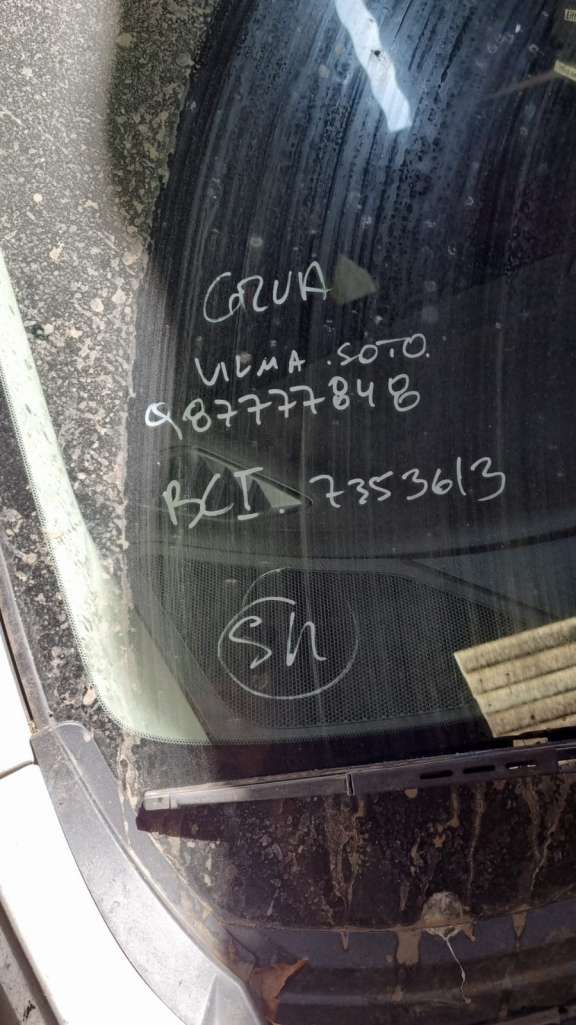 GRUA
VILMA SOTO.
987777848
BCI. 7353613